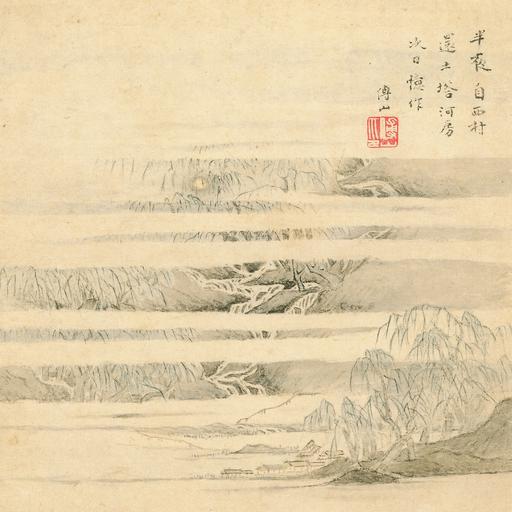 半夜自西村
還土塔河房
次日憶作
傅山